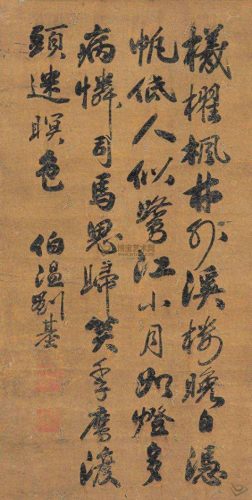 檥櫂楓林外溪樓晚自憑
帆低人似鶩江小月如燈多
病憐司馬思歸笑季鷹渡
頭迷暝色 伯溫劉基